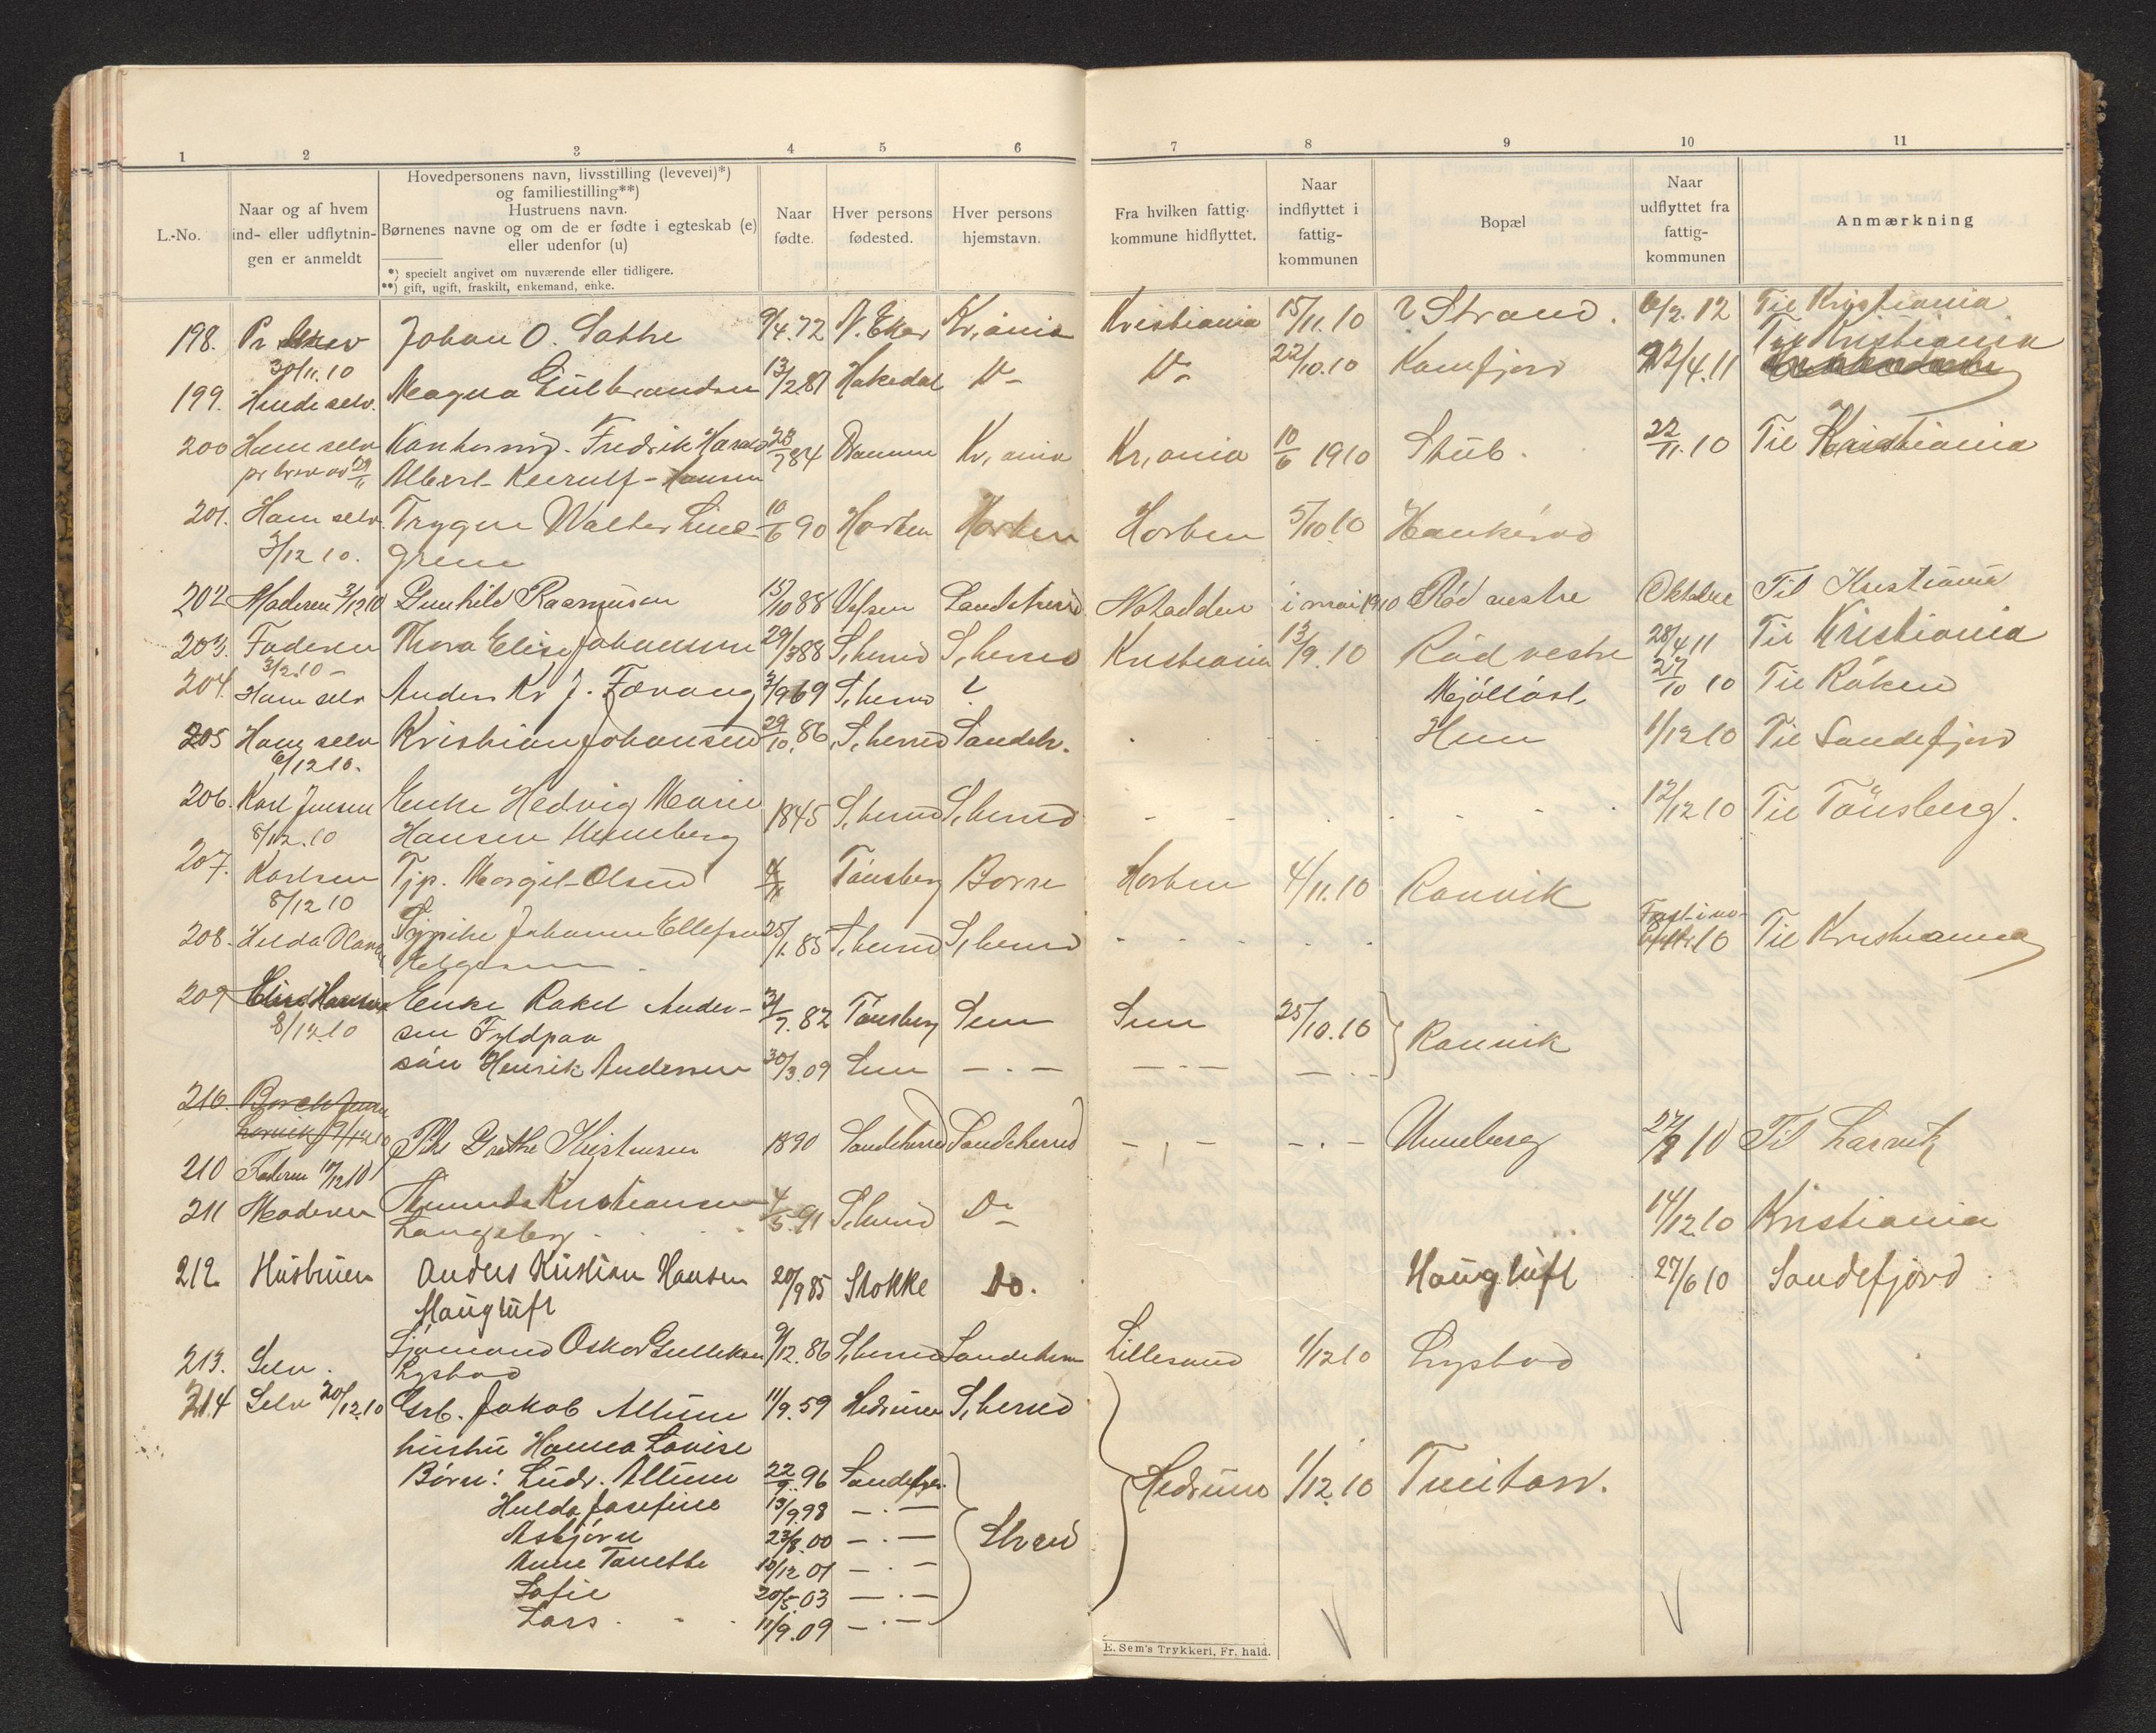 1 2 3 4 5 6 7 8 9 10 11
L.-No.
Naar og af hvem
ind- eller udflytnin-
gen er anmeldt
Hovedpersonens navn, livsstilling (levevei)*)
og familiestilling**)
Hustruens navn.
Børnenes navne og om de er fødte i egteskab (e)
eller udenfor (u)
*) specielt angivet om nuværende eller tidligere.
**) gift, ugift, fraskilt, enkemand, enke.
Naar
fødte.
Hver persons
fødested.
Hver persons
hjemstavn.
Fra hvilken fattig-
kommune hidflyttet.
Naar
indflyttet i
fattig-
kommunen
Bopæl
Naar
udflyttet fra
fattig-
kommunen
Anmærkning
198. Pr Johan O. Sathe 9/4.72 N. Eker Kr,ania Kristiania 15/11.10 ? Strand. 6/2.12 Til Kristiania
30/11.10
Til Kristiania
199. Hende selv. Magna Gulbrandsen 13/2 81 Hakedal Do Do 22/10.10 Kamfjord 22/4.11
200 Ham selv Kontormd. Fredrik Harald 23/7 84 Kr,ania Kr,ania 10/6 1910 Stub. 22/11.10 Til Kristiania
pr brev av 29/11 Albert Kierulf-Hansen
201. Ham selv Trygve Walter Lind- 10/6 90 Horten Horten Horten 5/10 10 Haukerød
3/12 10. gren
202 Moderen 3/12 10 Gunhild Rasmussen 15/10 88 Sandeherred Notodden i mai 1910 Rød vestre Oktober Til Kristiania
203. Faderen Thora Elise Johannsen 29/3 88 S,herred S,herred Kristiania 13/9.10 Rød vestre 28/4 11 Til Kristiania
3/12.10 -
204. Ham selv Anders Kr J. Fævang 3/9 69 S,herred ? Mjølløst. 27/10 10 Til Råken
205 Ham selv Kristian Johansen 29/10.86 S,herred Sandeh. Hun 1/12 10 Til Sandefjord
6/12 10.
206. Karl Jensen Enke Hedvig Marie 1845 S,herred S,herred 12/12 10 Til Tønsberg.
8/12.10 Hansen Unneberg
207. Karlsen Tjp. Margit Olsen Tønsberg Borre Horten 4/11.10 Ranvik
8/12 10
208. Hilda Pike Johanne Ellefsen 25/1.85 S,herred S,herred 10 Til Kristiania
Helgesen
209 Hansen Enke Rakel Ander- 3/7.82 Tønsberg Sem Sem 25/10.10 Ranvik
8/12.10 sen Fyldpaa
søn Henrik Andersen 30/3.09 Sem
210. Borch Jensen
Larvik 9/12 10
210 Faderen 10/12 10 Pike Grethe Kristensen 1890 Sandeherred Sandeherred Unneberg 27/9 10 Til Larvik
211 Moderen Amunda Kristiansen 4/5.91 S,herred Do 14/12.10 Kristiania
Langeby
212. Husbruen Anders Kristian Hansen 20/9 85 Stokke Do. Haugtuft 27/6 10 Sandefjord
Haugtuft
213. Selv. Sjømand Oskar Gulliksen 9/12.86 S,herred Sandeherred Lillesand 1/12 10 Lystad
Lystad
214 Selv 20/12.10 Grb. Jakob Allum 11/9.59 Hedrum S,herred
hustru Hanna Lovise
Børn: Ludv. Allum 22/9.96 Sandefj. Hedrum 1/12.10 Tveitan.
Hulda Josefine 13/9.98
Asbjørn 23/8.00 S,herred
Anne Tonette 10/12 01
Sofie 20/5 03
Lars 11/9.09
E. Sem's Trykkeri, Fr. hald.